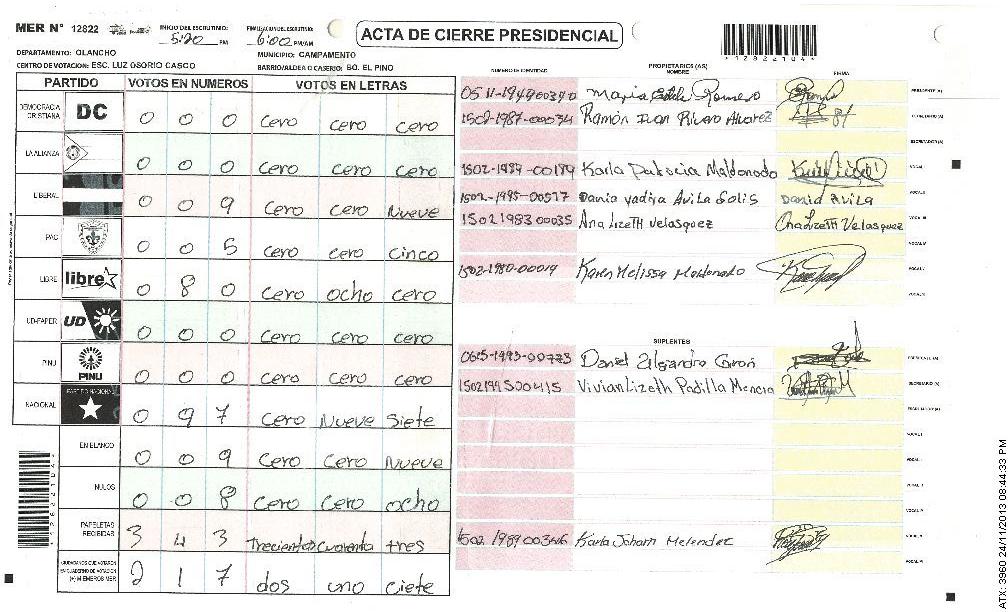 MER N° 12822
INICIO DEL ESCRUTINIO: 5:20 PM
FINALIZACION DEL ESCRUTINIO: 6:00 PM/AM
ACTA DE CIERRE PRESIDENCIAL
*12822104*
DEPARTAMENTO: OLANCHO
MUNICIPIO: CAMPAMENTO
CENTRO DE VOTACION: ESC. LUZ OSORIO CASCO
BARRIO/ALDEA O CASERIO: BO. EL PINO
PARTIDO VOTOS EN NUMEROS VOTOS EN LETRAS
DEMOCRACIA CRISTIANA DC 0 0 0 cero cero cero
LA ALIANZA 0 0 0 cero cero cero
LIBERAL 0 0 9 cero cero Nueve
PAC 0 0 5 cero cero cinco
LIBRE libre 0 8 0 cero ocho cero
UD-FAPER UD 0 0 0 cero cero cero
PINU PINU 0 0 0 cero cero cero
NACIONAL PARTIDO NACIONAL 0 9 7 cero Nueve siete
EN BLANCO 0 0 9 cero cero Nueve
NULOS 0 0 8 cero cero ocho
PAPELETAS RECIBIDAS 3 4 3 Trecientos cuarenta tres
CIUDADANOS QUE VOTARON EN CUADERNO DE VOTACION (+) MIEMBROS MER 2 1 7 dos uno ciete
NUMERO DE IDENTIDAD PROPIETARIOS (AS) NOMBRE FIRMA
0511-1949-00340 Maria Romero PRESIDENTE (A)
1502-1987-00034 Ramón Ivan Rivero Alvarez SECRETARIO (A)
ESCRUTADOR (A)
1502-1989-00189 Karla Patricia Maldonado VOCAL I
1502-1995-00517 Dania yadira Avila Solis Dania Avila VOCAL II
1502198300035 Ana Lizeth Velasquez Ana Lizeth Velasquez VOCAL III
VOCAL IV
1502-1980-00019 Karen Melissa Maldonado VOCAL V
VOCAL VI
SUPLENTES
0615-1993-00773 Daniel Alejandro PRESIDENTE (A)
1502199500415 Vivian Lizeth Padilla Mencia SECRETARIO (A)
ESCRUTADOR (A)
VOCAL I
VOCAL II
VOCAL III
VOCAL IV
1502 1989 00346 Karla Johana Melendez VOCAL V
VOCAL VI
ATX: 3960 24/11/2013 08:44:33 PM